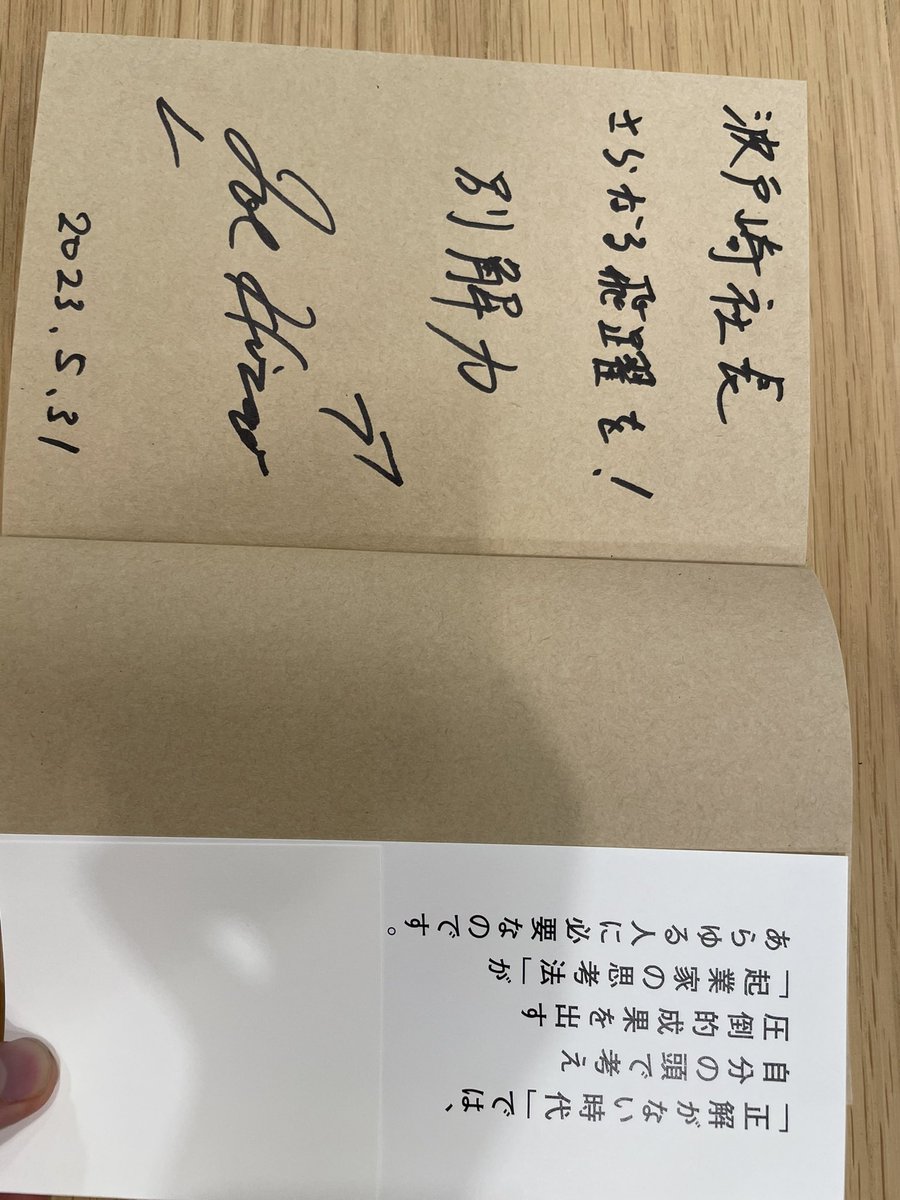 波戸崎社長
さらなる飛躍を!
別解力
Joe Hirao
2023.5.31
「正解がない時代」では、
自分の頭で考え
圧倒的成果を出す
「起業家の思考法」が
あらゆる人に必要なのです。